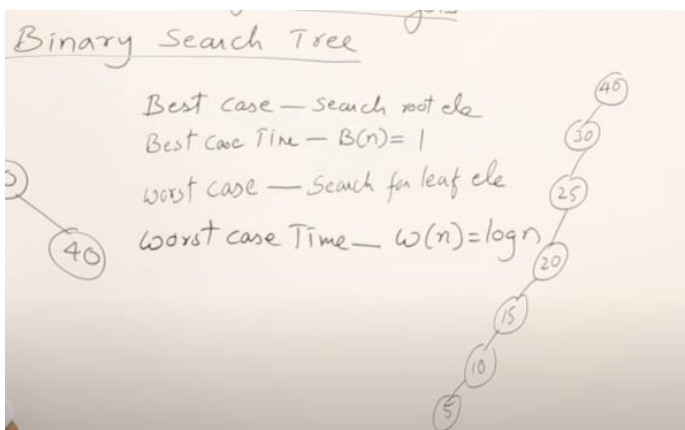 Binary Search Tree
Best case — search root ele
Best case Time — B(n) = 1
worst case — Search for leaf ele
worst case Time — w(n) = log n
40
40
30
25
20
15
10
5